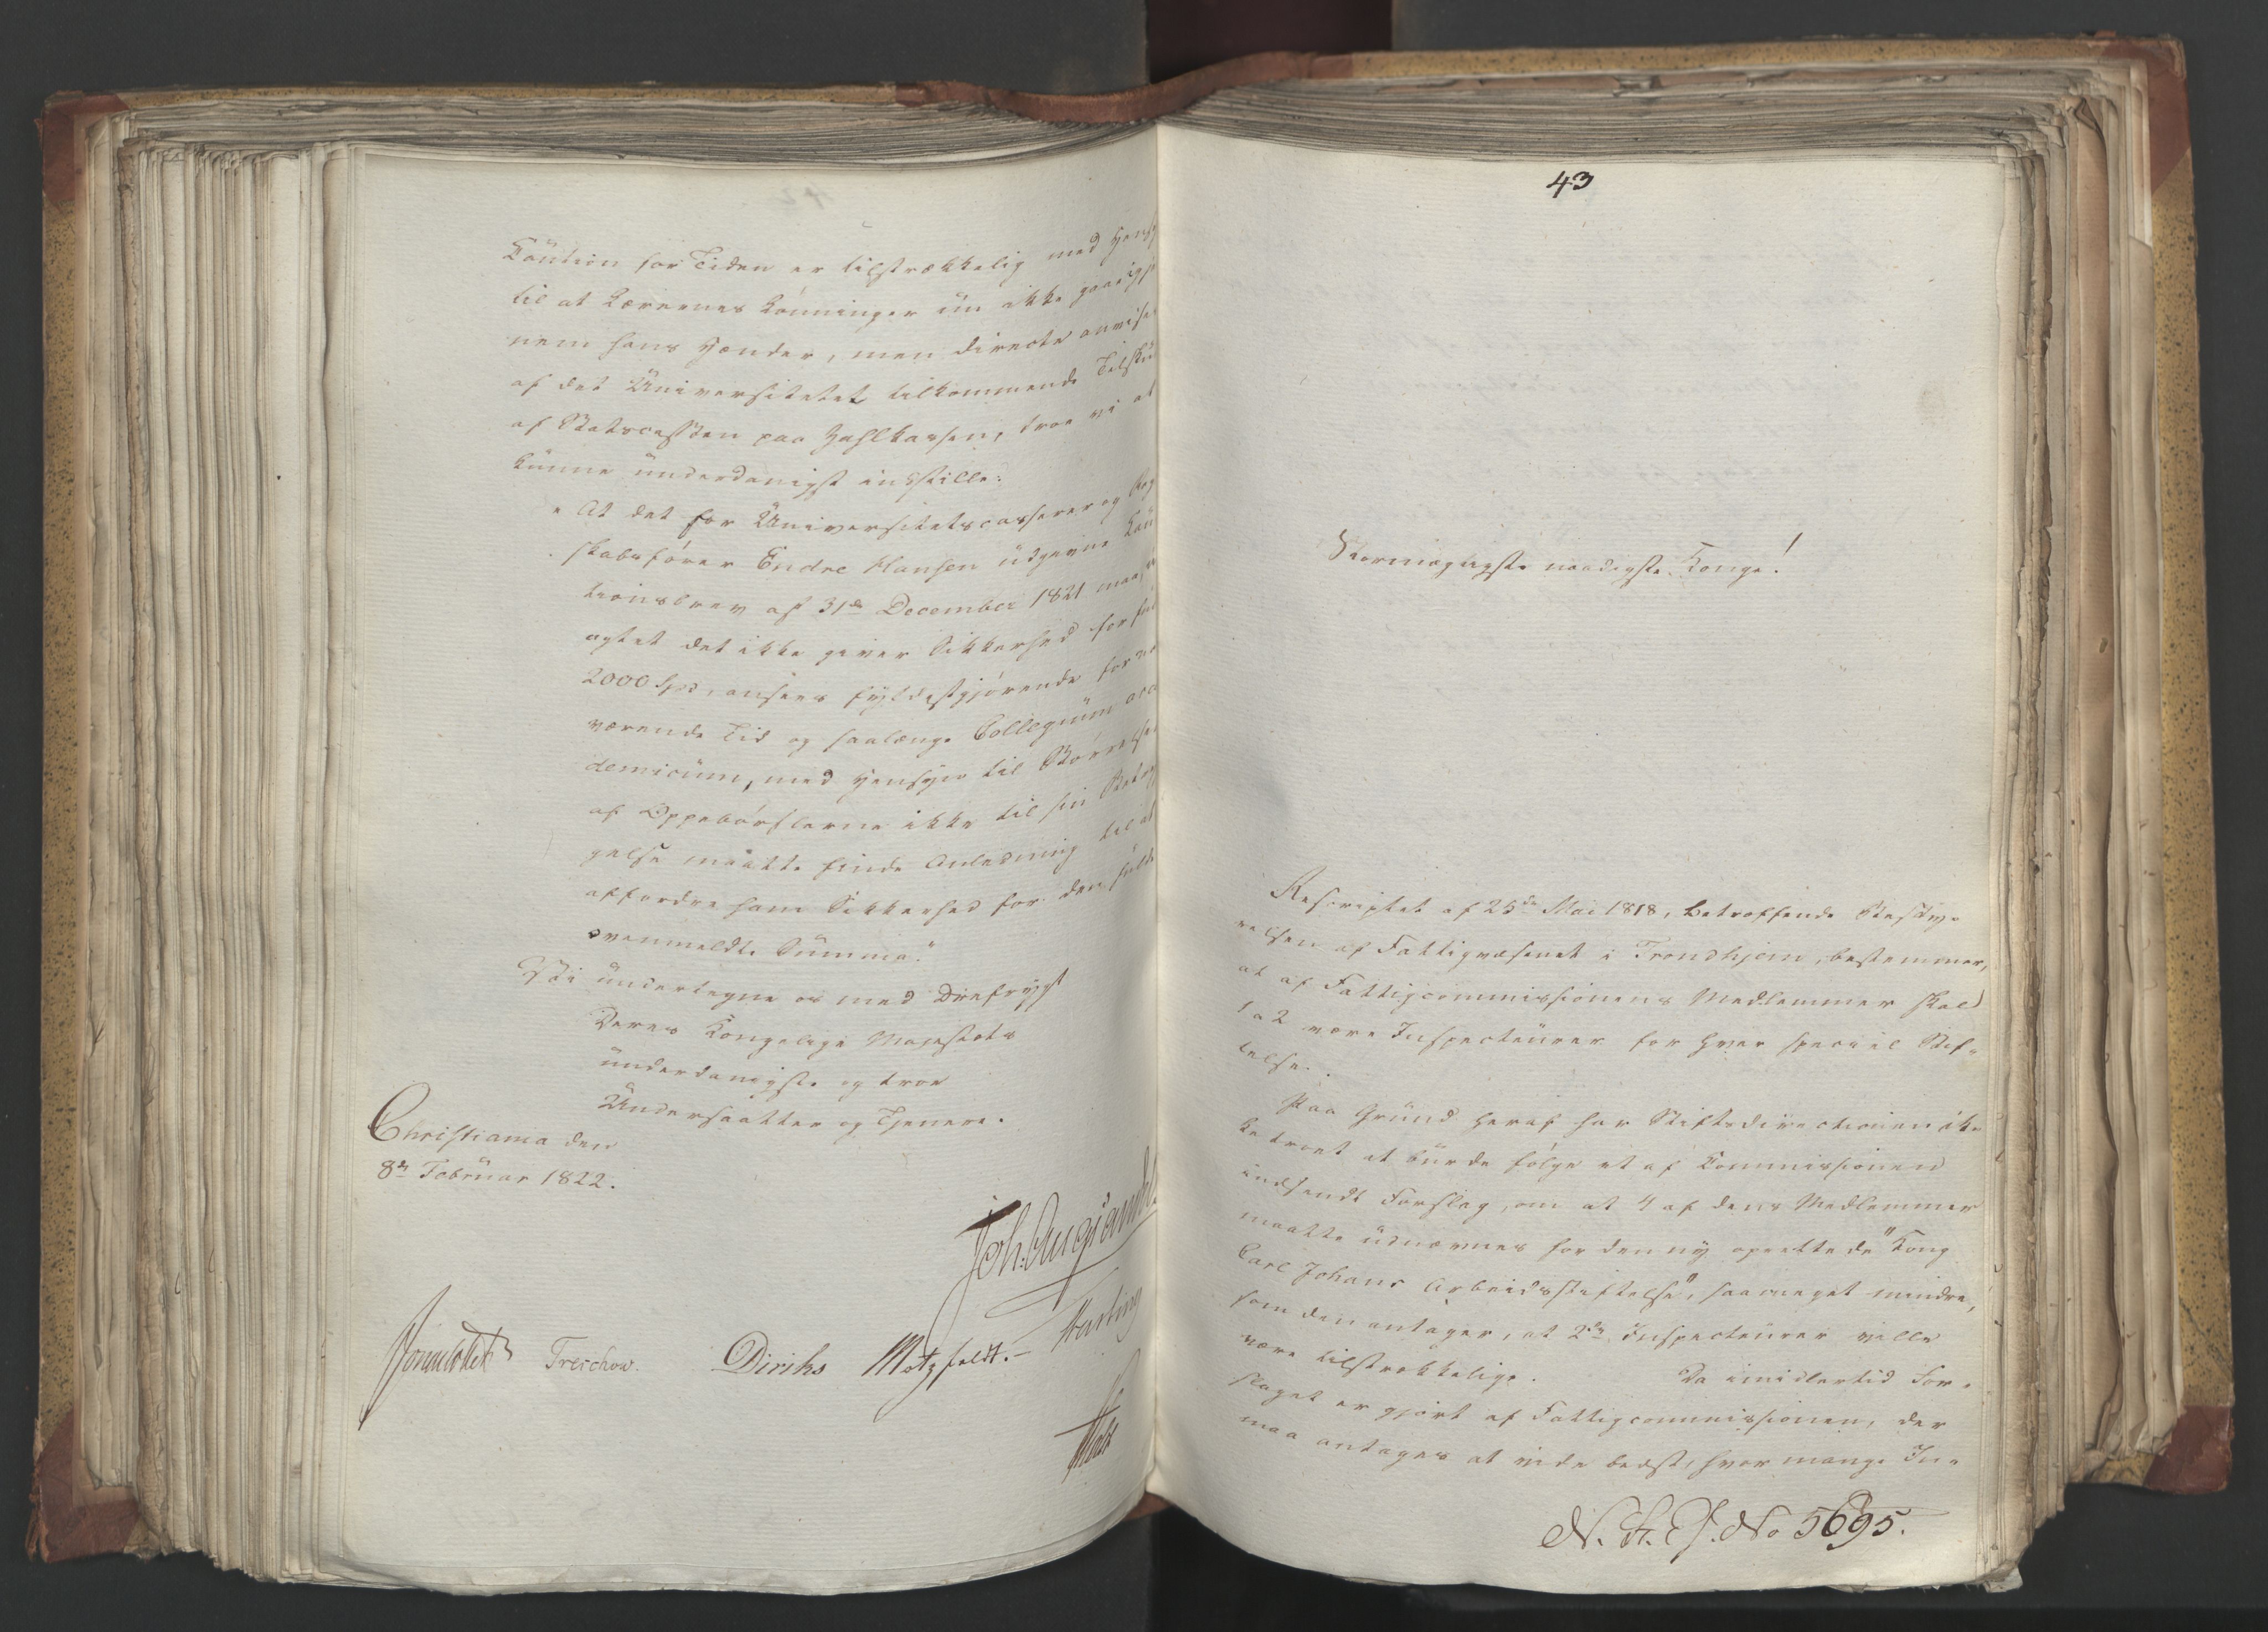 Caution for Tiden er tilstrækkelig med Hensy
til at Lærernes Lønninger nu ikke gaae igje
nem hans Hænder, men directe anvises
af det Universitetet tilkommende Tilskud
af Statscassen paa Zahlkassen, troe vi at
kunne underdanigst indstille:
"At det for Universitetscasserer og Reg
skabsfører Endre Hansen udgevne Cau
tionsbrev af 31te December 1821 maa, u
agtet det ikke giver Sikkerhed for
2000 Spd, ansees fyldestgjørende for nær
værende Tid og saalænge Collegium aca
demicum, med Hensyn til Størrelsen
af Oppebørslerne ikke til sin
gelse maatte finde Anledning til at
affordre ham Sikkerhed for den fulde
ovenmeldte Summa."
Vi undertegne os med Dybefrygt
Deres Kongelige Majestæts
underdanigste og troe
Undersaatter og Tjenere.
Christiania den
8de Februar 1822.
Sommerhielm Treschow. Diriks Motzfeldt.
Holst
43
Stormægtigste naadigste Konge!
Rescriptet af 25de Mai 1818, betræffende Besty-
relsen af Fattigvæsenet i Trondhjem, bestemmer,
at af Fattigcommissionens Medlemmer skal
1 a 2 være Inspecteurer for hver speciel Stif-
telse.
Paa Grund heraf har Stiftsdirectionen ik-
ke troet at burde følge et af Commissionen
indsendt Forslag, om at 4 af dens Medlemmer
maatte udnævnes for den ny oprettede "Kong
Carl Johans Arbeidsstiftelse", saameget mindre,
som den antager, at 2de Inspecteurer ville
være tilstrækkelige. Da imidlertid For-
slaget er gjort af Fattigcommissionen, der
maa antages at vide bedst, hvor mange In-
N. R. J. No 5695.